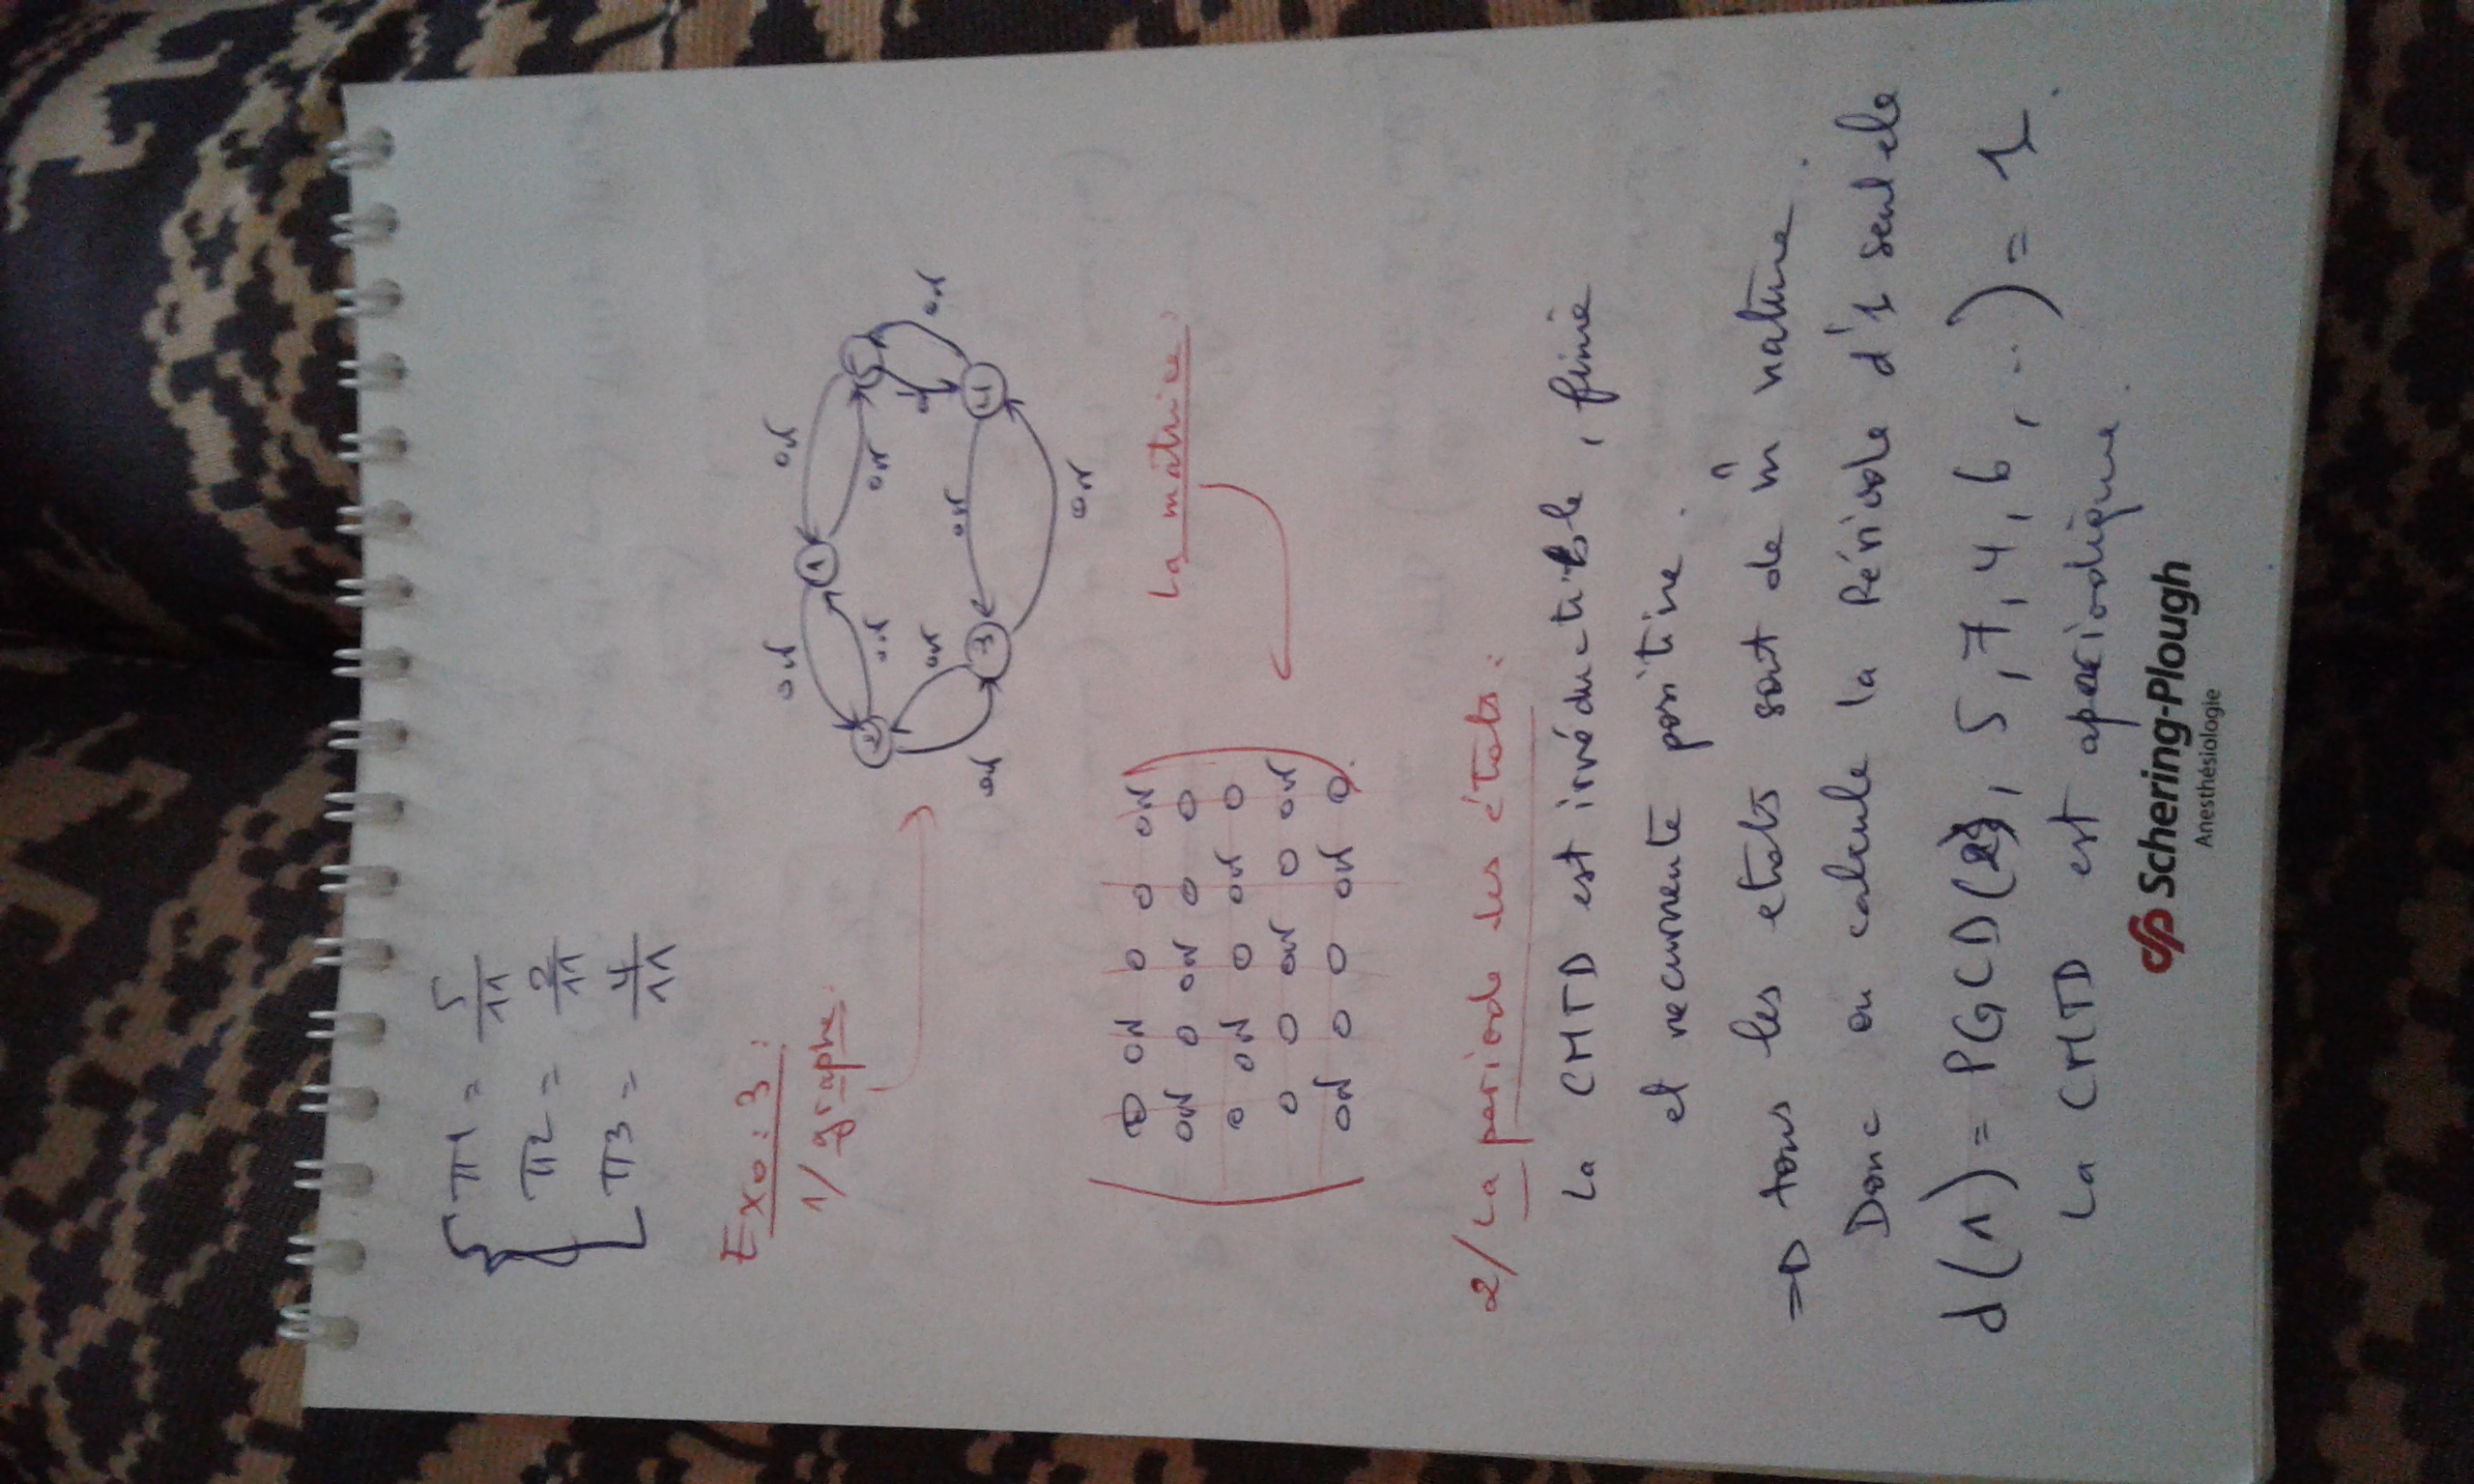 π1 = 5/11
π2 = 2/11
π3 = 4/11
Exo: 3:
1/ graphe
0,5 0,5
1
2 5
0,5 0,5
0,5 0,5
0,5 0,5
3 4
0,5
0 0,5 0 0 0,5
0,5 0 0,5 0 0
0 0,5 0 0,5 0
0 0 0,5 0 0,5
0,5 0 0 0,5 0
La matrice:
2/ La periode des états:
La CMTD est irréductible, finie
et recurrente positive.
=> tous les etats sont de m̂ nature.
Donc on calcule la Période d'1 seul ele
d(1) = PGCD(2, 5, 7, 4, 6, ...) = 1.
La CMTD est aperiodique.
Schering-Plough
Anesthésiologie